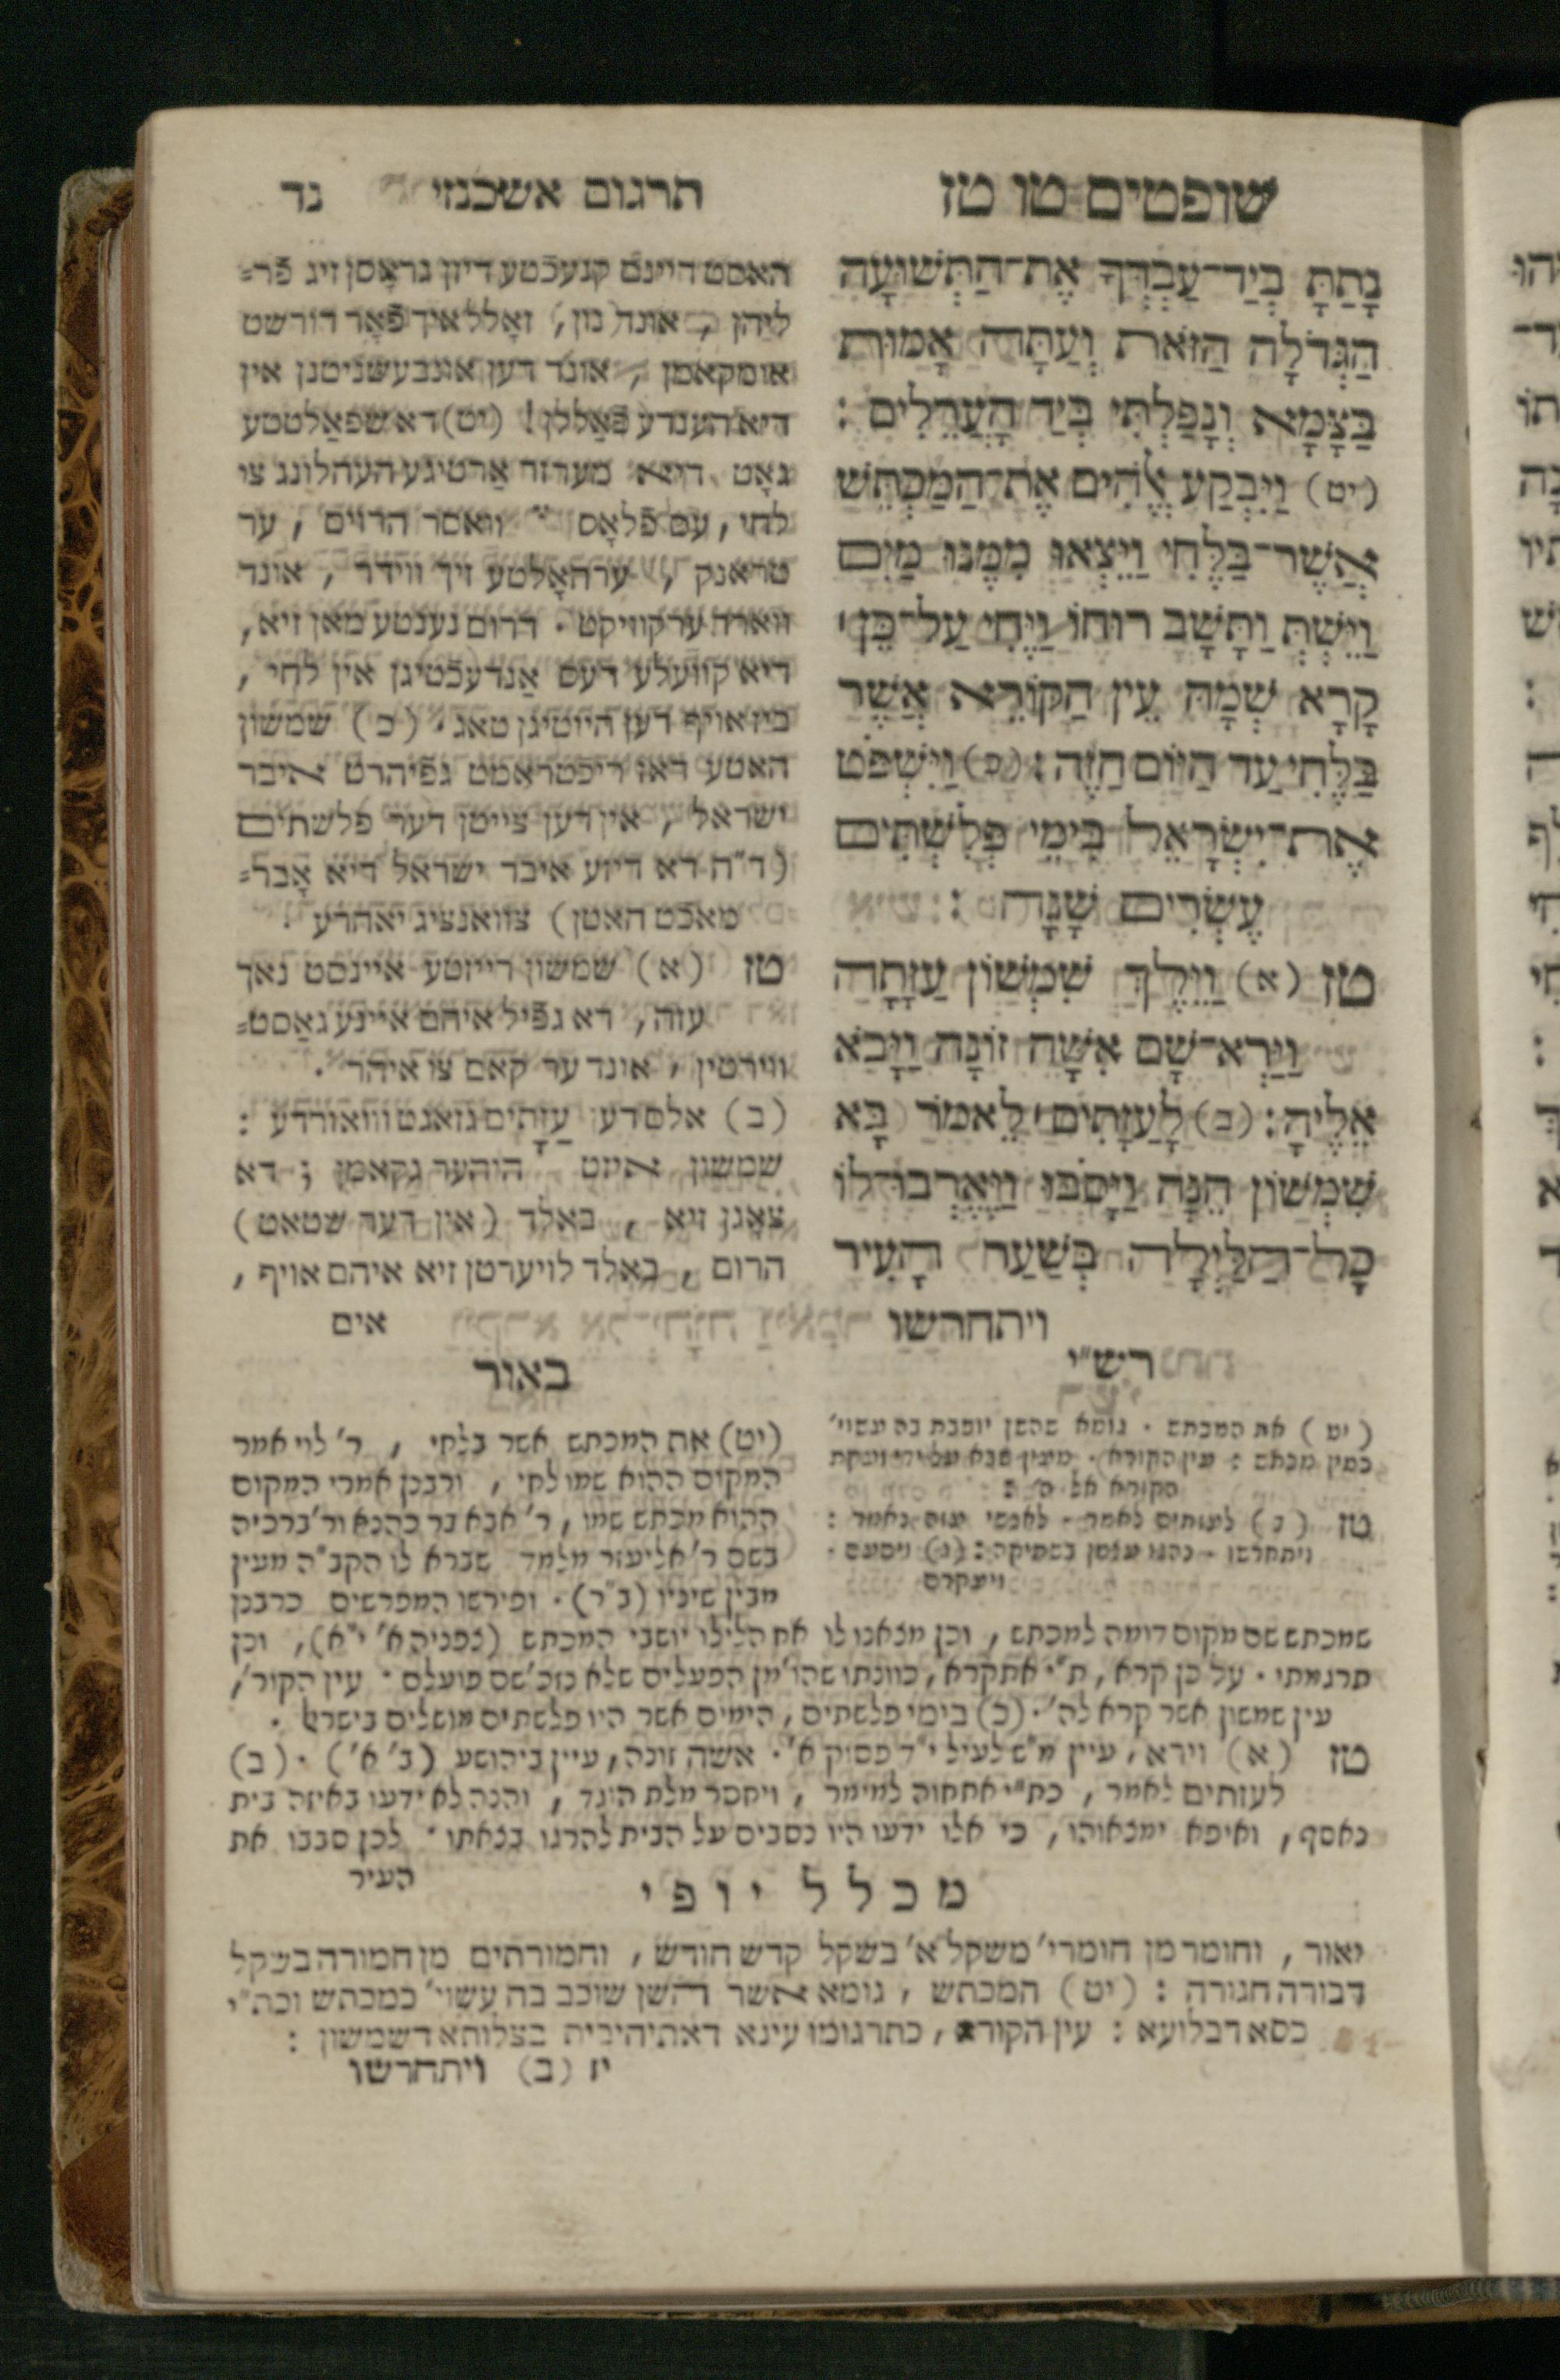 שופטים טו טז
תרגום אשכנזי
נד
נָתַתָּ בְיַד־עַבְדְּךָ אֶת־הַתְּשׁוּעָה
הַגְּדֹלָה הַזֹּאת וְעַתָּה אָמוּת
בַּצָּמָא וְנָפַלְתִּי בְּיַד הָעֲרֵלִים :
(יט) וַיִּבְקַע אֱלֹהִים אֶת־הַמַּכְתֵּשׁ
אֲשֶׁר־בַּלֶּחִי וַיֵּצְאוּ מִמֶּנּוּ מַיִם
וַיֵּשְׁתְּ וַתָּשָׁב רוּחוֹ וַיֶּחִי עַל־כֵּן ׀
קָרָא שְׁמָהּ עֵין הַקּוֹרֵא אֲשֶׁר
בַּלֶּחִי עַד הַיּוֹם הַזֶּה : (כ) וַיִּשְׁפֹּט
אֶת־יִשְׂרָאֵל בִּימֵי פְלִשְׁתִּים
עֶשְׂרִים שָׁנָה :
טז (א) וַיֵּלֶךְ שִׁמְשׁוֹן עַזָּתָה
וַיַּרְא־שָׁם אִשָּׁה זוֹנָה וַיָּבֹא
אֵלֶיהָ : (ב) לָעַזָּתִים ׀ לֵאמֹר בָּא
שִׁמְשׁוֹן הֵנָּה וַיָּסֹבּוּ וַיֶּאֶרְבוּ־לוֹ
כָל־הַלַּיְלָה בְּשַׁעַר הָעִיר
ויתחרשו
האסט דיינם קנעכטע דיזן גראָסן זיג פֿר=
ליהן , אונד נון , זאָלל איך פֿאָר דורשט
אומקאמן , אונד דען אונבעשניטנן אין
דיא הענדע פֿאַללן ! (יט) דא שפאַלטטע
גאָט דיא מערזר אַרטיגע העהלונג צו
לחי , עס פֿלאָס וואסר הרויס , ער
טראנק , ערהאָלטע זיך ווידר , אונד
ווארד ערקוויקט . דרום נענטע מאן זיא ,
דיא קוועלע דעס אַנדעכטיגן אין לחי ,
ביז אויף דען היוטיגן טאג . (כ) שמשון
האטע דאז ריכטראמט געפיהרט איבר
ישראל , אין דען צייטן דער פלשתים
(ד״ה דא דיזע איבר ישראל דיא אָבר=
מאכט האטן) צוואנציג יאהרע .
טז (א) שמשון רייזטע איינסט נאך
עזה , דא גפֿיל איהם איינע גאַסט=
ווירטין , אונד ער קאם צו איהר .
(ב) אלס דע עַזָתִים גזאגט וואורדע :
שמשון איזט היהער גקאמן ; דא
צאָגן זיא , באלד (אין דער שטאט)
הרום , באלד לויערטן זיא איהם אויף ,
אים
רש״י
(יט) את המכתש . גומא שהשן יושבת בה עשוי׳
כמין מכתש : עין הקורא .
הקורא אל ה׳
טז (ב) לעזתים לאמר . לאנשי עזה נאמר :
ויתחרשו . : (ג) ויסעם .
ויעקרם
באור
(יט) את המכתש אשר בלחי , ר׳ לוי אמר
המקום ההוא שמו לחי , ורבנן אמרי המקום
ההוא מכתש שמו , ר׳ אבא בר כהנא ור׳ ברכיה
בשם ר׳ אליעזר מלמד שברא לו הקב״ה מעין
מבין שיניו (ב״ר) . ופירשו המפרשים כרבנן
שמכתש שם מקום דומה למכתש , וכן מצאנו לו את הלילו יושבי המכתש (צפניה א׳ י״א) , וכן
תרגמתי . על כן קרא , ת״י אתקרא , כוונתו שהו׳ מן הפעלים שלא נזכ׳ שם פועלם . עין הקור׳ ,
עין שמשון אשר קרא לה׳ . (כ) בימי פלשתים , הימים אשר היו פלשתים מושלים בישראל .
טז (א) וירא , עיין מ״ש לעיל י״ד פסוק א׳ . אשה זונה , עיין ביהושע (ב׳ א׳) . (ב)
לעזתים לאמר , כת״י אתחוה למימר , ויחסר מלת הוגד , והנה לא ידעו באיזה בית
נאסף , ואיפא ימצאוהו , כי אלו ידעו היו נסבים על הבית להרגו בצאתו . לכן סבבו את
העיר
מכלל יופי
יאור , וחומר מן חומרי׳ משקל א׳ בשקל קדש חודש , וחמורתים מן חמורה בשקל
דבורה חגורה : (יט) המכתש , גומא אשר השן שוכב בה עשוי׳ כמכתש וכת״י
כסא דבלועא : עין הקורא , כתרגומו עינא דאתיהיבית בצלותא דשמשון :
יז (ב) ויתחרשו